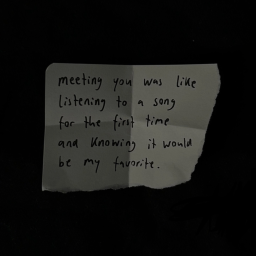 meeting you was like
listening to a song
for the first time
and knowing it would
be my favorite.